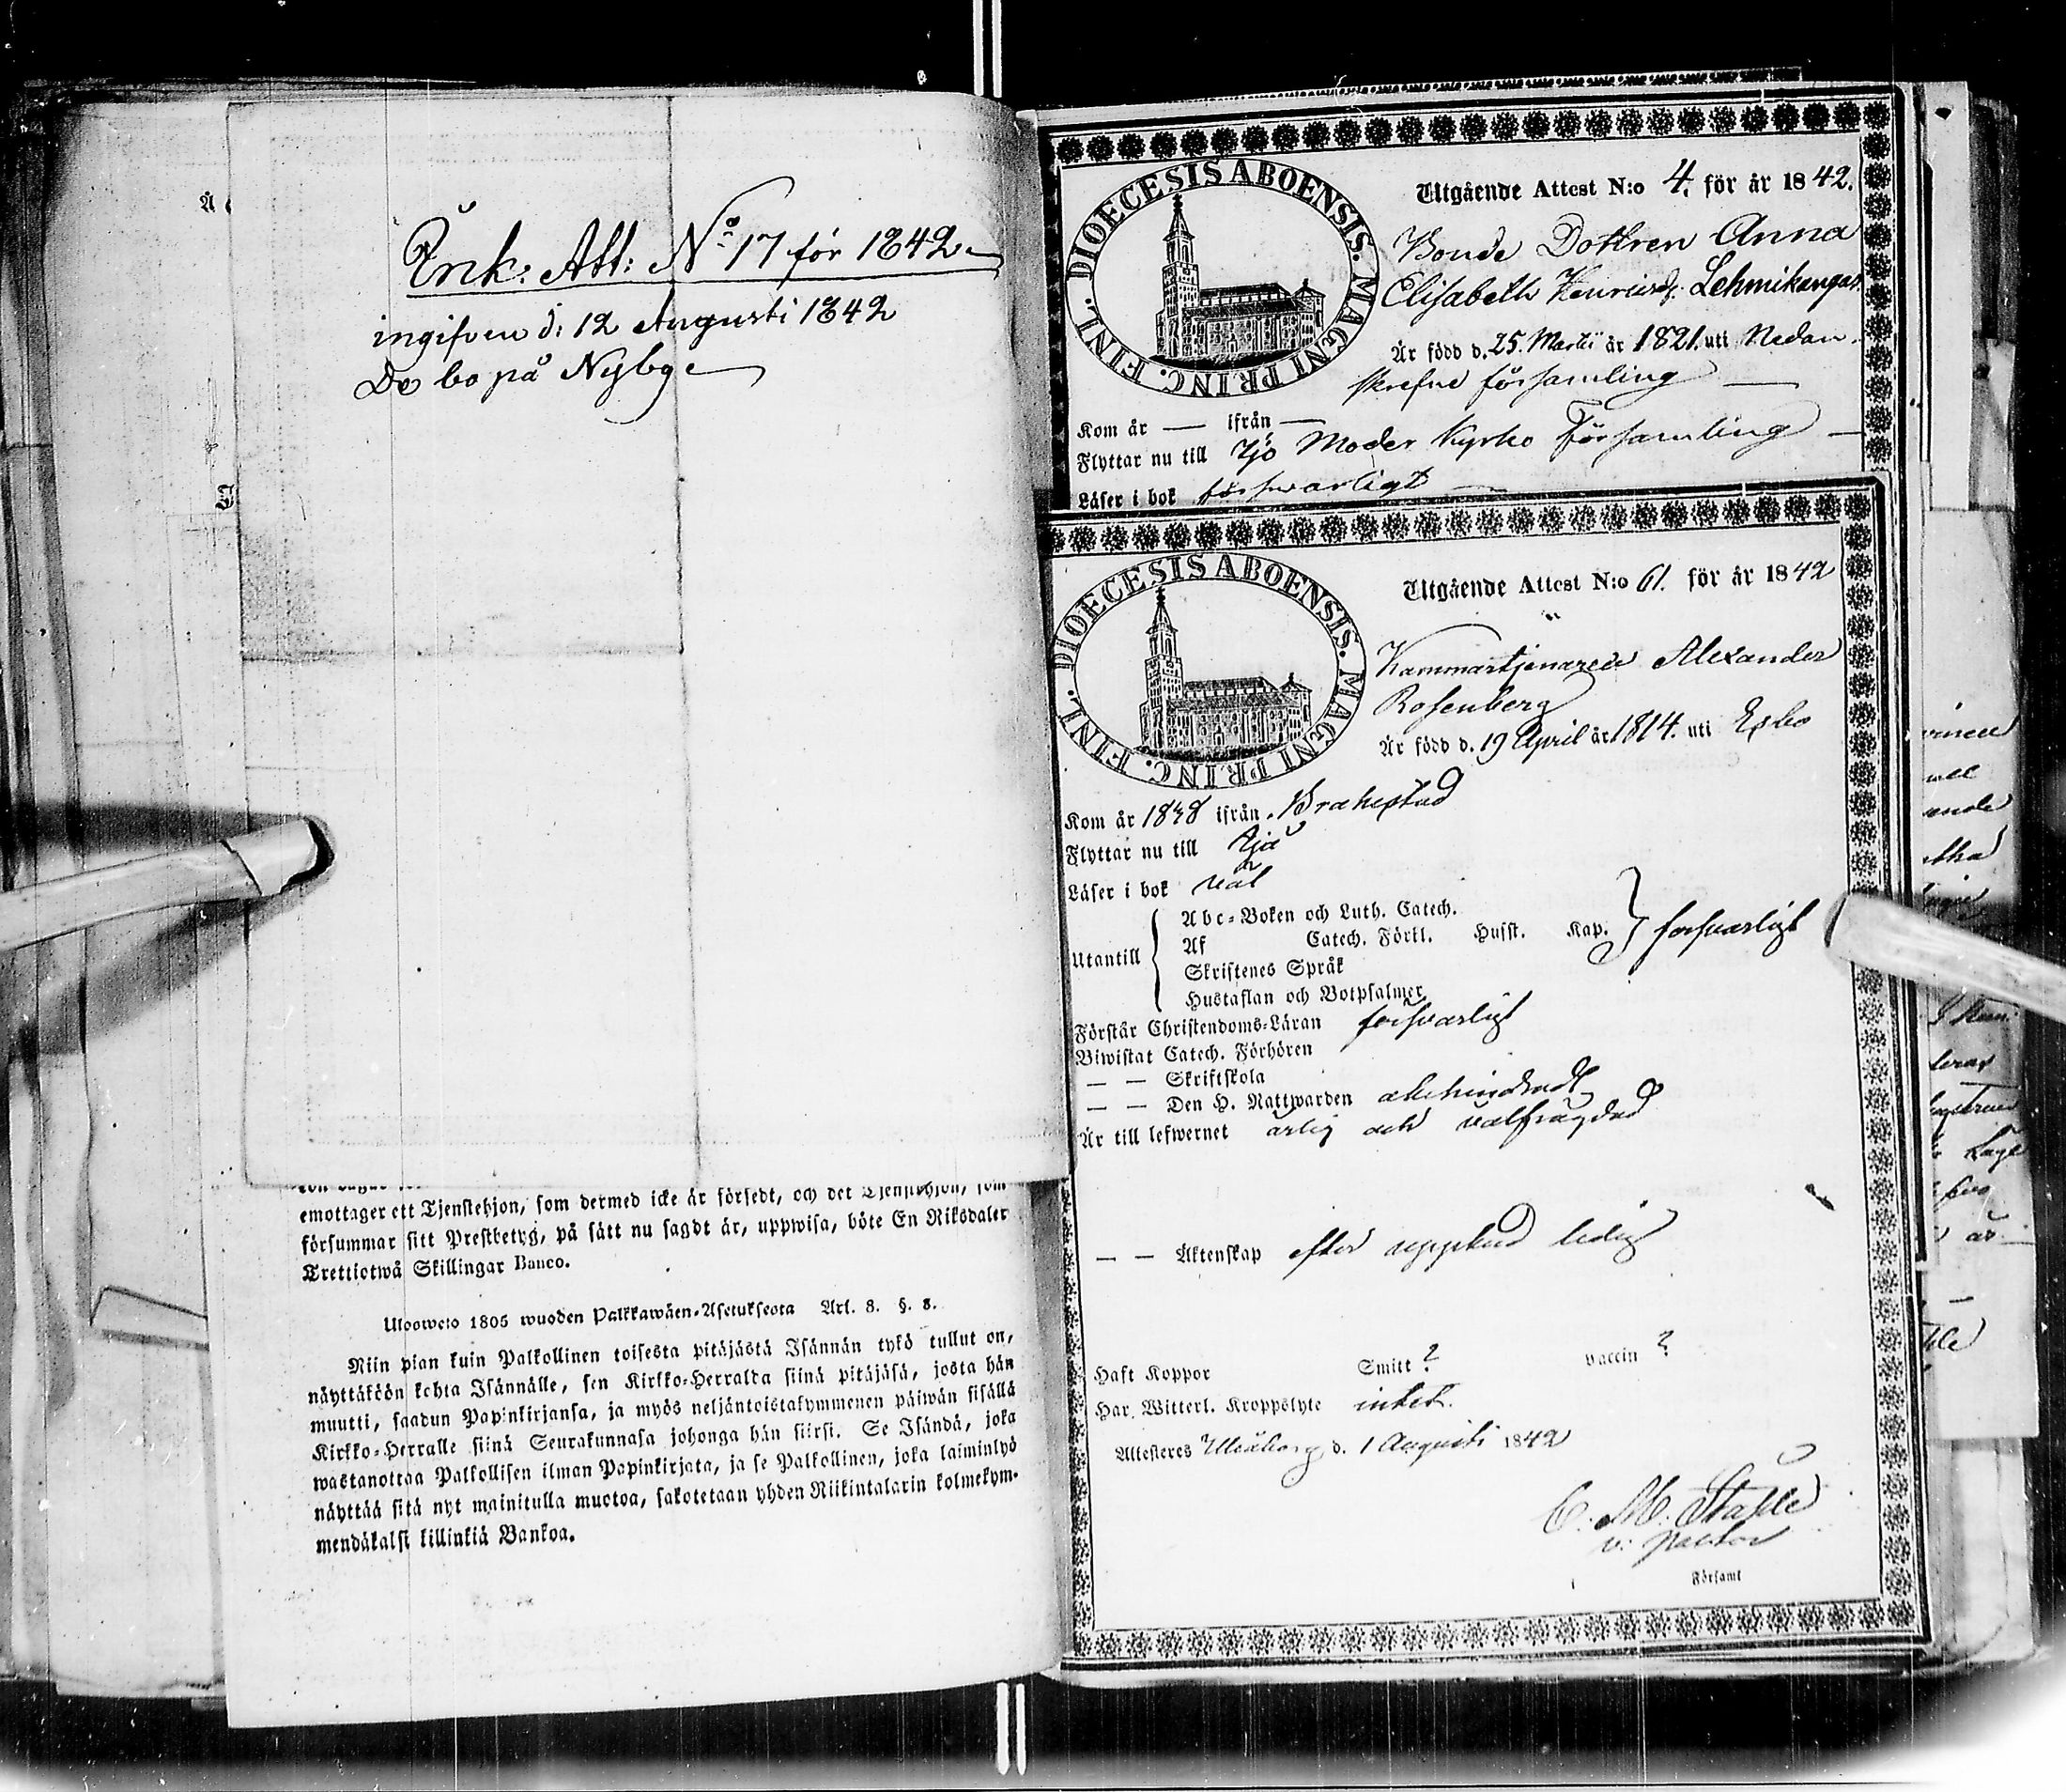 Ank: Att: No 17 för 1842
ingifven d: 12 Augusti 1842
De bo på Nybyge
emottager ett Tjenstehjon, som dermed icke är försedt, och det Tjenstehjon, som
försummar sitt Prestbetyg, på sätt nu sagdt är, uppwisa, böte En Riksdaler
Trettiotwå Skillingar Banco.
Ulosweto 1805 wuoden Palkkawäen-Asetuksesta Art. 8. §. 8.
Niin pian kuin Palkollinen toisesta pitäjästä Isännän tykö tullut on,
näyttäköön kohta Isännälle, sen Kirkko-Herralda siinä pitäjäsä, josta hän
muutti, saadun Papinkirjansa, ja myös neljäntoistakymmenen päiwän sisällä
Kirkko-Herralle siinä Seurakunnasa johonga hän siirsi. Se Isändä, joka
wastanottaa Palkollisen ilman Papinkirjata, ja se Palkollinen, joka laiminlyö
näyttää sitä nyt mainitulla muotoa, sakotetaan yhden Riikintalarin kolmekym-
mendäkaksi killinkiä Bankoa.
DIOECESIS ABOENSIS. MAGNI PRINC. FINL.
Utgående Attest N:o 4. för år 1842.
Bonde Dottren Anna
Elisabeth Henricsd:r Lehmikangas
Är född d. 25. Martii år 1821. uti Nedan-
skrefne församling
Kom år — ifrån —
Flyttar nu till Ijo Moder Kyrko Församling —
Läser i bok försvarligt
DIOECESIS ABOENSIS. MAGNI PRINC. FINL.
Utgående Attest N:o 61. för år 1842
Kammartjenaren Alexander
Rosenberg
Är född d. 19 April år 1814. uti Esbo
Kom år 1838 ifrån Brahestad
Flyttar nu till Ijo
Läser i bok väl
Utantill
Abc-Boken och Luth. Catech.
Af Catech. Förkl. Husst. Kap. försvarligt
Skriftenes Språk
Hustaflan och Botpsalmer
Förstår Christendoms-Läran försvarligt
Biwistat Catech. Förhören
— — Skriftskola
— — Den H. Nattwarden obehindradt
Är till lefwernet ärlig och välfrägdad
— — Äktenskap efter uppbud ledig
Haft Koppor Smitt ? vaccin ?
Har Witterl. Kroppslyte intet.
Attesteres Uleåborg d. 1 Augusti 1842
C. M. Ståhle
v: pastor
Församl